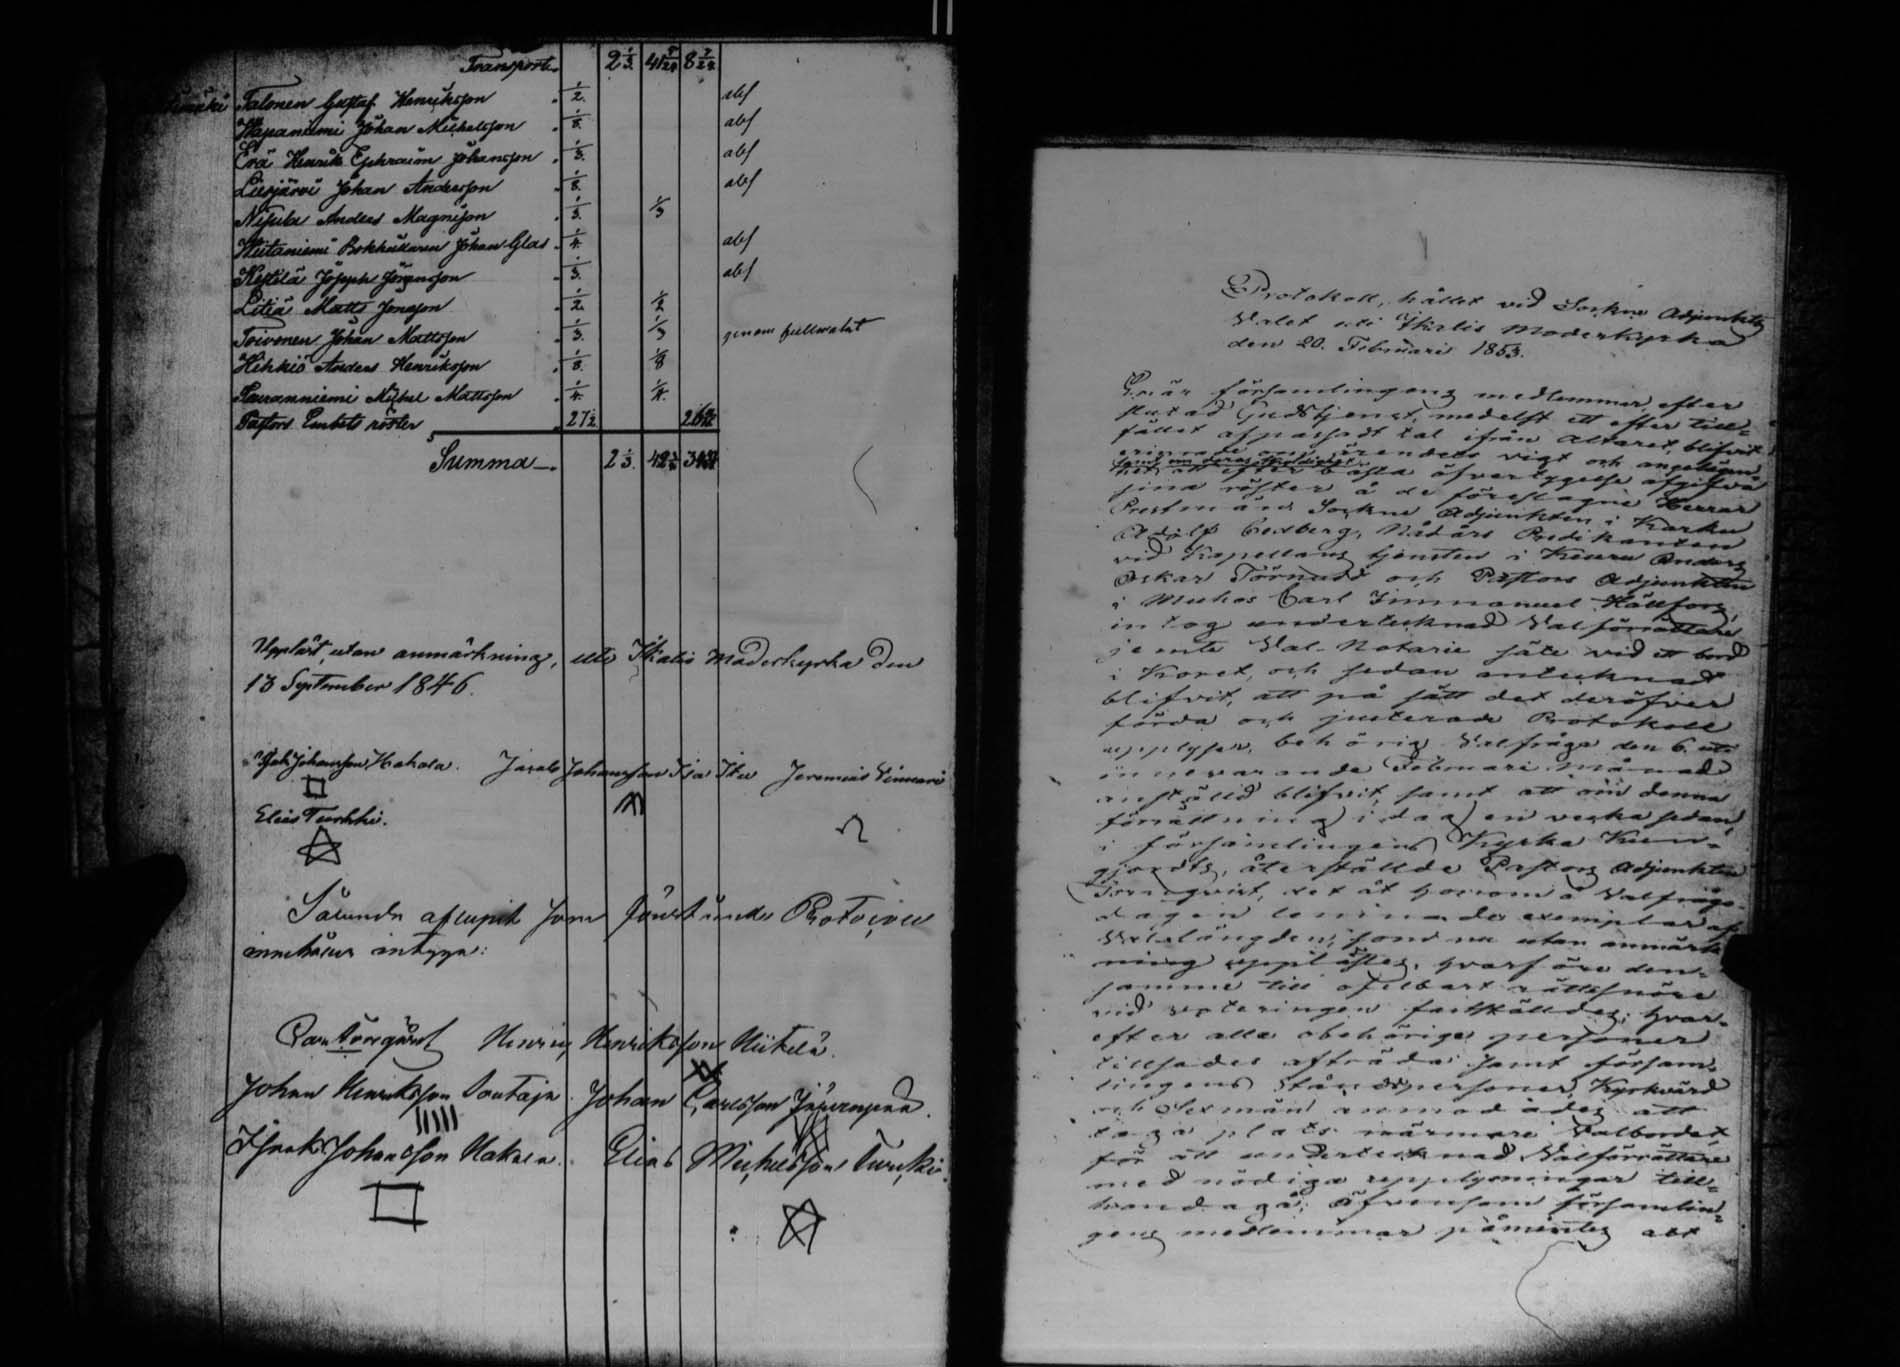 Transport. 2 1/3. 41 5/24 8 7/24
Talonen Gustaf Henriksson . 1/2. abs
Haapaniemi Johan Michelsson . 1/8. abs
Erä Henrik Ephraim Johansson . 1/3. abs
Liesjärvi Johan Andersson . 1/8. abs
Nisula Anders Magnison . 1/3. 1/3
Wiitaniemi Bokhållaren Johan Glas . 1/4. abs
Kestilä Joseph Jöransson . 1/3. abs
Litiä Matts Jonasson . 1/2. 1/2
Toivonen Johan Mattsson . 1/3. 1/3 genom fullmakt
Hihkiö Anders Henriksson . 1/8. 1/8
Sauramniemi Michel Mattsson . 1/4. 1/4.
Pastors Embets röster . 27 1/2
Summa 2 1/3.
Uppläst, utan anmärkning, uti Ikalis Moderkyrka den
13 September 1846.
Johansson Hakala. Jacob Johansson Isa Iku Jeremias Vinnari
Elias Turkki.
Sålunda aflupit som förestående Protocoll
innehåller intyga:
Carl Törnqvist Henric Henriksson Niitelä.
Johan Henriksson Poutaja. Johan Carlsson Järvenpää.
Isak Johansson Hakala. Elias Michelsson Turkki.
Protokoll, hållet vid Sockne Adjunkts
Valet uti Ikalis Moderkyrka
den 20. Februarii 1853.
församlingens medlemmar efter
slutad Gudstjenst, medelst ett efter till-
fället afpassadt tal ifrån altaret, blifvit
ärendets vigt och angelägen-
het att efter bästa öfvertygelse afgifva
sina röster å de föreslagne Herrar
Prestmän Sockne Adjunkten i Karku
Adolf Boxberg, Nådårs Predikanten
vid Kapellans tjensten i Keuru Anders
Oskar Törnudd och Pastors Adjunkten
i Muhos Carl Immanuel Hällfors,
intog undertecknad Valförrättare
jemte Val-Notarie säte vid ett bord
i Koret, och sedan antecknad
blifvit, att på sätt det deröfver
förda och justerade Protokoll
upplyser, behörig Valfråga den 6. uti
innevarande Februari Månad
anställd blifvit, samt att om denna
förrättning i dag en vecka sedan,
i församlingens Kyrka Kun-
gjordts, återställde Pastors Adjunkten
Törnqvist, det åt honom å Valfråge-
dagen lemnade exemplar af
Vallängden, som nu utan anmärk-
ning upplästes, hvarföre den-
samme till ofelbart rättesnöre
vid voteringen fastställdes; hvar-
efter alla obehöriga personer
tillsades afträda samt försam-
lingens Ståndspersoner, Kyrkvärd
och Sexmän anmodades att
taga plats närmare Valbordet,
för att undertecknad Valförrättare
med nödiga upplysningar till-
handagå; Äfvensom församlin-
gens medlemmar påmintes att